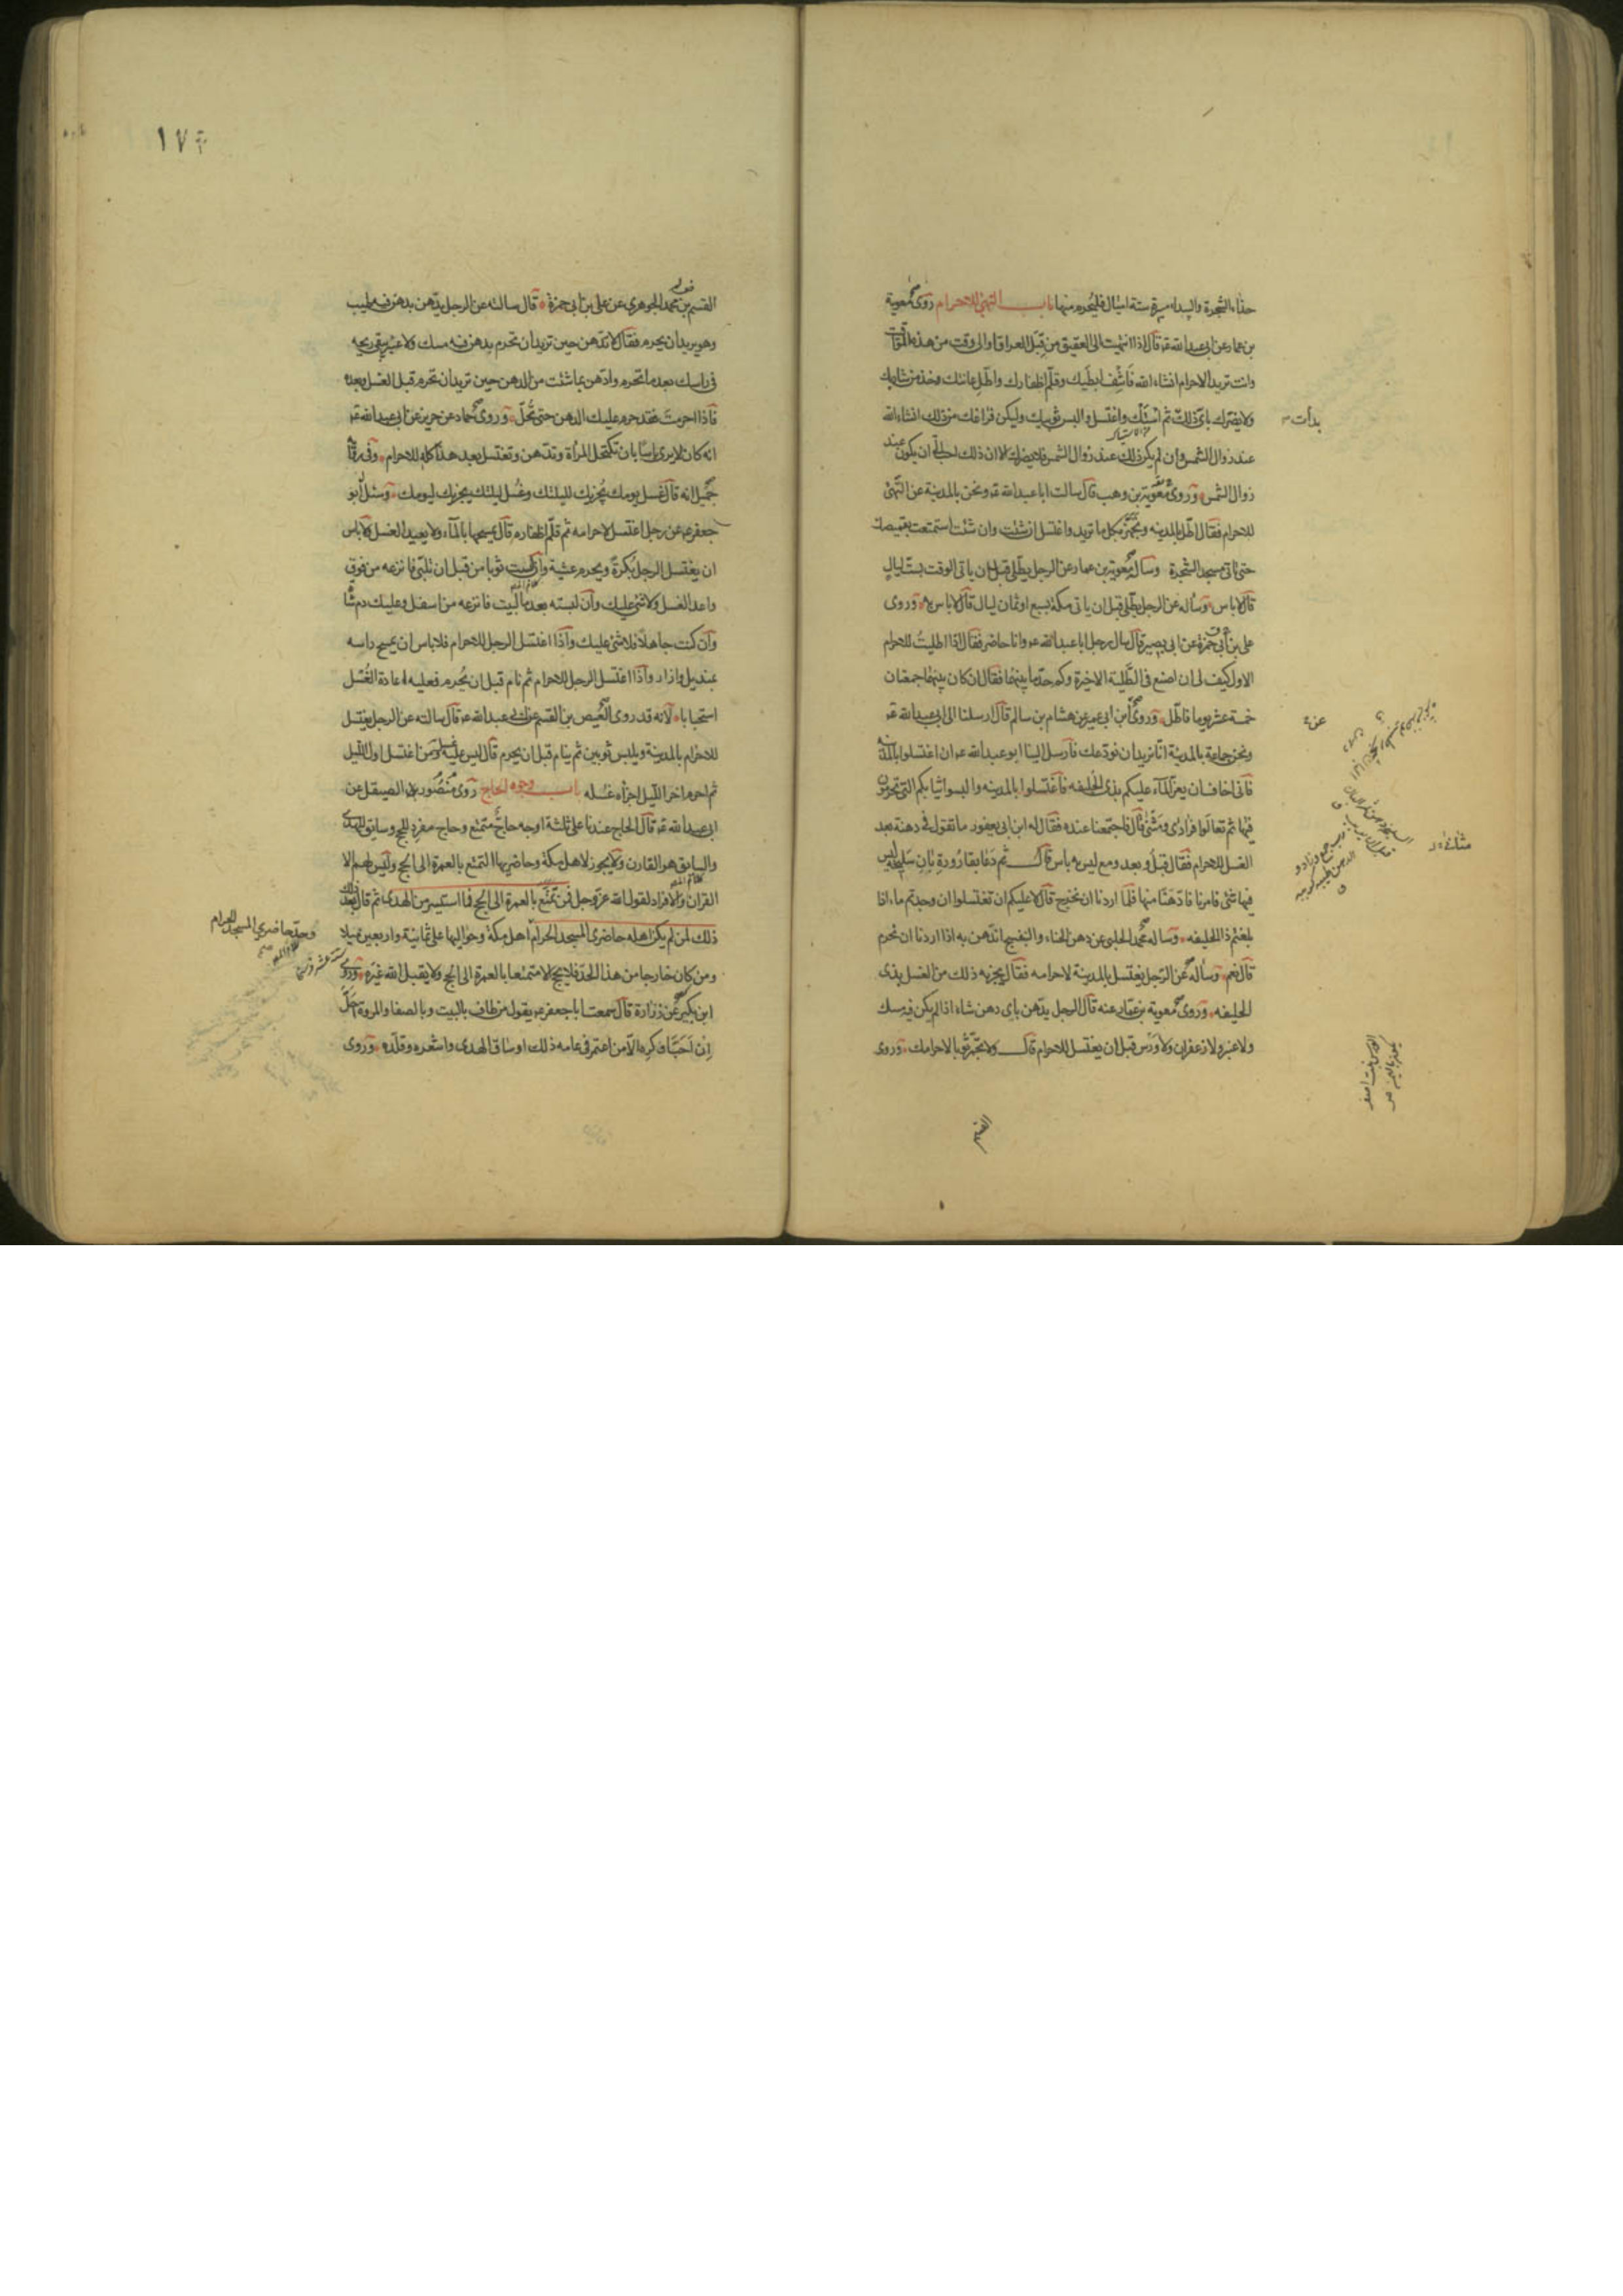 حذاء الشجرة والبيداء مسيرة ستة اميال فليحرم منها باب التهيؤ للاحرام روى معوية
بن عمار عن ابى عبدالله ع قال اذا انتهيت الى العقيق من قبل العراق او الى وقت من هذه المواقيت
وانت تريد الاحرام انشاء الله فانتف ابطيك وقلم اظفارك واطل عانتك وخذ من شاربك
ولا يضرك باى ذلك بدأت ثم استك واغتسل والبس ثوبيك وليكن فراغك من ذلك انشاء الله
عند زوال الشمس وان لم يكن ذلك عند زوال الشمس فلا يضرك الا ان ذلك احب الى ان يكون عند
زوال الشمس وروى معوية بن وهب قال سالت ابا عبدالله ع ونحن بالمدينة عن التهيؤ
للاحرام فقال اطل بالمدينه وتجهز بكل ما تريد واغتسل ان شئت وان شئت استمتعت بقميصك
حتى تاتى مسجد الشجرة وساله معوية بن عمار عن الرجل يطلى قبل ان ياتى الوقت بست ليال
قال لا باس وساله عن الرجل يطلى قبل ان ياتى مكة بسبع او ثمان ليال قال لا باس به وروى
على بن ابى حمزة عن ابى بصير قال سال رجل ابا عبدالله ع وانا حاضر فقال اذا اطليت للاحرام
الاول كيف لى ان اصنع فى الطلية الاخيرة وكم حد ما بينهما فقال ان كان بينهما جمعتان
خمسة عشر يوما فاطل وروى ابن ابى عمير عن هشام بن سالم قال ارسلنا الى ابى عبدالله ع
ونحن جماعة بالمدينة انا نريد ان نودعك فارسل الينا ابو عبدالله ع ان اغتسلوا بالمدينة
فانى اخاف ان يعز الماء عليكم بذى الحليفه فاغتسلوا بالمدينه والبسوا ثيابكم التى تحرمون
فيها ثم تعالوا فرادى ومثنى قال فاجتمعنا عنده فقال له ابن ابى يعفور ما تقول فى دهنة بعد
الغسل للاحرام فقال قبل وبعد ومع ليس به باس قال ثم دعا بقارورة بان سليخة ليس
فيها شئ فامرنا فادهنا منها فلما اردنا ان نخرج قال لا عليكم ان تغتسلوا ان وجدتم ماء اذا
بلغتم ذا الحليفه وساله محمد الحلبى عن دهن الحناء والبنفسج اندهن به اذا اردنا ان نحرم
قال نعم وساله عن الرجل يغتسل بالمدينة لاحرامه فقال يجزيه ذلك من الغسل بذى
الحليفه وروى معوية بن عمار عنه قال الرجل يدهن باى دهن شاء اذا لم يكن فيه مسك
ولا عنبر ولا زعفران ولا ورس قبل ان يغتسل للاحرام قال ولا تجمر ثوبا لاحرامك وروى
القسم
القسم بن محمد الجوهرى عن على بن ابى حمزة قال سالته عن الرجل يدهن بدهن فيه طيب
وهو يريد ان يحرم فقال لا تدهن حين تريد ان تحرم بدهن فيه مسك ولا عنبر يبقى ريحه
فى راسك بعد ما تحرم وادهن بما شئت من الدهن حين تريد ان تحرم قبل الغسل وبعده
فاذا احرمت فقد حرم عليك الدهن حتى تحل وروى حماد عن حريز عن ابى عبدالله ع
انه كان لا يرى باسا بان تكتحل المراة وتدهن وتغتسل بعد هذا كله للاحرام وفى رواية
جميل انه قال غسل يومك يجزيك لليلتك وغسل ليلتك يجزيك ليومك وسئل ابو
جعفر ع عن رجل اغتسل لاحرامه ثم قلم اظفاره قال يمسحها بالماء ولا يعيد الغسل ولا باس
ان يغتسل الرجل بكرة ويحرم عشية وان لبست ثوبا من قبل ان تلبى فانزعه من فوق
واعد الغسل ولا شئ عليك وان لبسته بعد ما لبيت فانزعه من اسفل وعليك دم شاة
وان كنت جاهلا فلا شئ عليك واذا اغتسل الرجل للاحرام فلا باس ان يمسح راسه
بمنديل وازار واذا اغتسل الرجل للاحرام ثم نام قبل ان يحرم فعليه اعادة الغسل
استحبابا لانه قد روى العيص بن القسم عن ابى عبدالله ع قال سالته عن الرجل يغتسل
للاحرام بالمدينة ويلبس ثوبين ثم ينام قبل ان يحرم قال ليس عليه غسل ومن اغتسل اول الليل
ثم احرم اخر الليل اجزأه غسله باب وجوه الحاج روى منصور الصيقل عن
ابى عبدالله ع قال الحاج عندنا على ثلثة اوجه حاج متمتع وحاج مفرد للحج وسايق للهدى
والسايق هو القارن ولا يجوز لاهل مكة وحاضريها التمتع بالعمرة الى الحج وليس لهم الا
القران والافراد لقول الله عز وجل فمن تمتع بالعمرة الى الحج فما استيسر من الهدى ثم قال بعد ذلك
ذلك لمن لم يكن اهله حاضرى المسجد الحرام اهل مكة وحواليها على ثمانية واربعين ميلا
وحد حاضرى المسجد الحرام
ومن كان خارجا من هذا الحد فلا يحج الا متمتعا بالعمرة الى الحج ولا يقبل الله غيره وروى
ابن بكير عن زرارة قال سمعت ابا جعفر ع يقول من طاف بالبيت وبالصفا والمروة احل
ان احب او كره الا من اعتمر فى عامه ذلك او ساق الهدى واشعره وقلده وروى